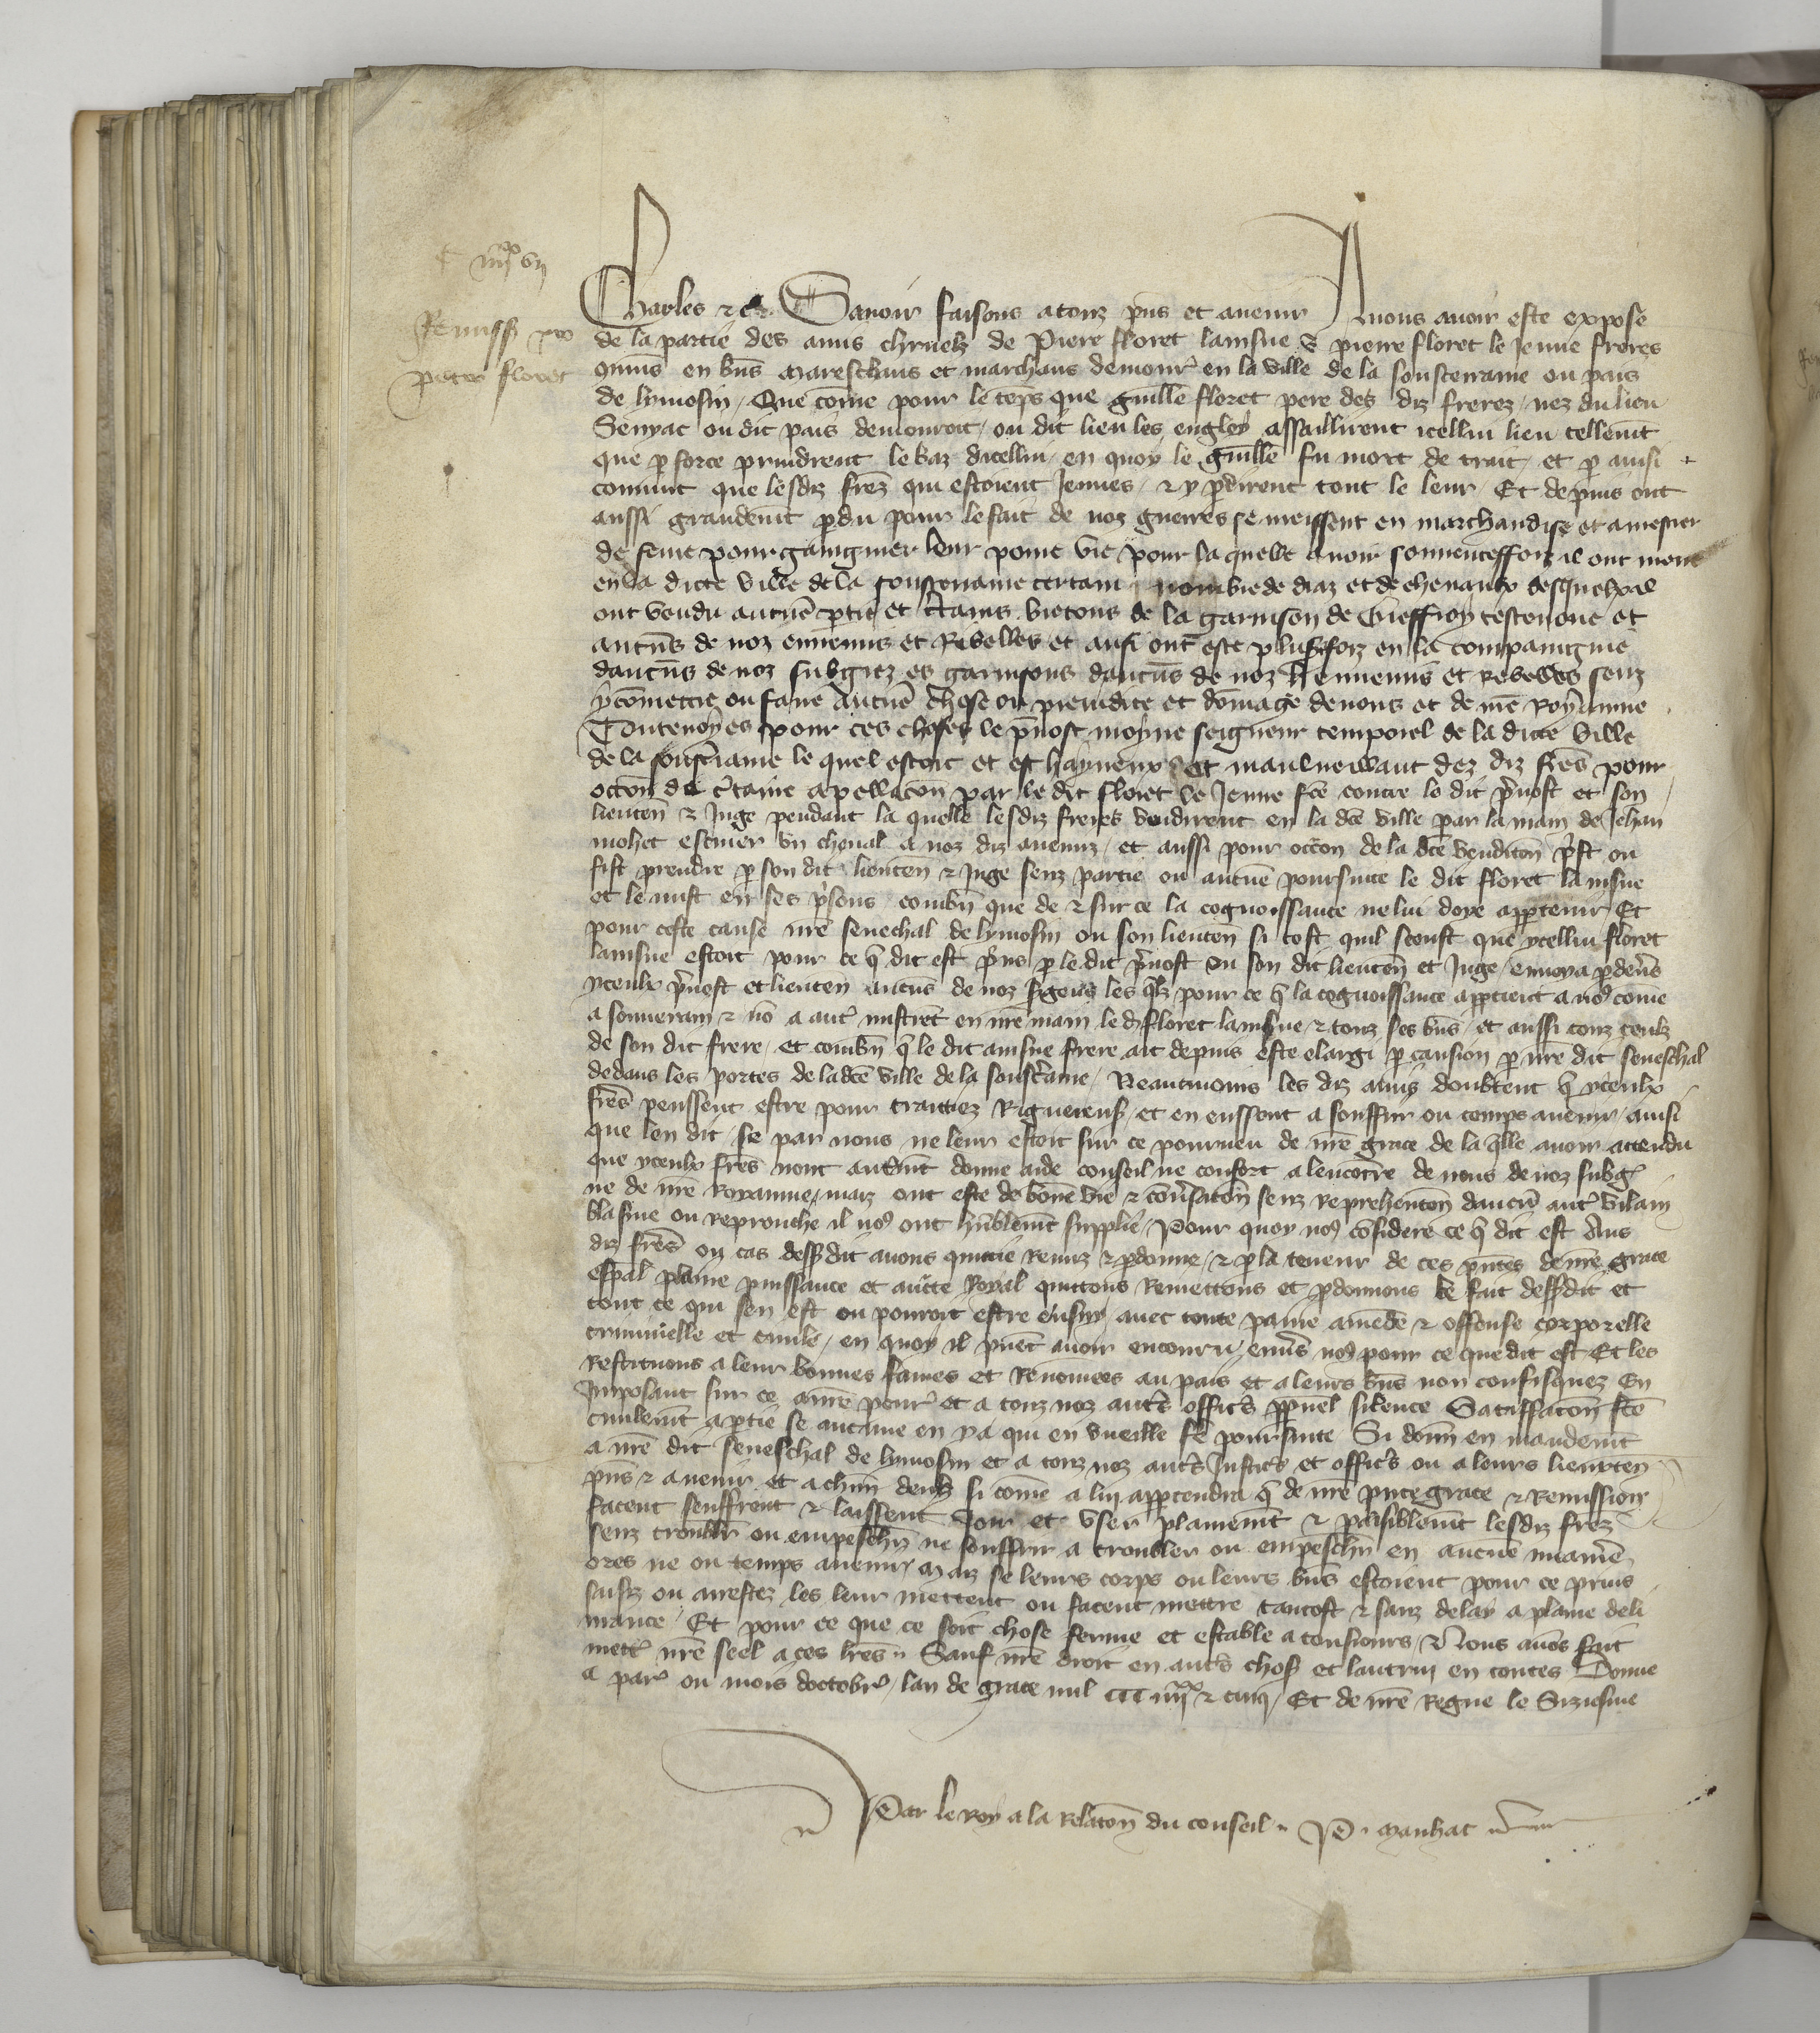 C iiijxx vij
Remissio pro
petro floret
Charles &c. Savoir faisons a touz pns et avenir A nous avoir este expose
de la partie des amis chrnelz de Pierre floret lainsne & pierre floret le Jeune freres
en bns Mareschaus et marchans demour en la ville de la sousterraine ou pais
de lymosin, Que come pour le teps que guille floret pere des diz frerez, nez du lieu
Senyac ou dit pais demouroit, ou dit lieu les englois assaillirent icellui lieu tellemt
que p force prindrent le baz dicellui, en quoy le guille fu mort de trait, et p ainsi
convint que lesdiz frez qui estoient Jeunes, & y pdirent tout le leur, Et depuis ont
aussi grandemt pdu pour le fait de noz guerres se meissent en marchandise et a mesner
de ferir pour gaingnier leur povre vie pour la quelle avoir souventeffoiz il ont mene
en la dicte ville de la sousterraine certain nombre de draz et de chevaulx desquelx il
ont vendu aucune ptie et ctains bretons de la garnison de et
aucuns de noz ennemis et Rebelles et ansi ont este plusfoiz en la compaingnie
daucuns de noz subgiez es garnisons daucuns de noz Ennemis et rebelles senz
y comettre ou faire Aucune chose ou preiudice et domage de nous et de nre Royaume
Toutevoyes pour ces choses le pvost moyne seigneur temporel de la dicte ville
de la sousterraine le quel estoit et est hayneux et maulveullant dez diz fres pour
occon de ctaine apellacon par le dit floret le Jeune fce contre le dit prvost et son
lieuten & Juge pendant la quelle lesdiz freres vendirent en la dce ville par la main de Jehan
mohet escuier un cheval a noz diz ennemiz, et aussi pour occon de la dce vendicon prist ou
fist prendre p son dit lieuten & Juge senz partie ou aucune poursuite le dit floret lainsne
et le mist en ses prisons, combn que de & sur ce la cognoissance ne lui doye apptenir Et
pour ceste cause nre senechal de lymosin ou son lieuten si tost quil sceust que ycellui floret
lainsne estoit pour ce q dit est prins p le dit prvost ou son dit lieuten et Juge, envoya pdevs
yceulx prvost et lieuten aucuns de noz sgens les qlz pour ce q la cognoissance apptient a nos come
a souverain & no a autre mistret en nre main le d floret lainsne & touz ses bns, et aussi touz ceulz
de son dit frere, et combn q le dit ainsne frere ait depuis este elargi p caution p nre dit seneschal
dedans les portes de ladce ville de la sousterraine, Neantmoins les diz amis doubtent q yceulx
fres peussent estre pour traittiez Riguereus, et en eussent a souffrir ou temps avenir, ainsi
que len dit, se par nous ne leur estoit sur ce pourveu de nre grace de la qlle avoir attendu
que yceulx fres nont autremt donne aide conseil ne confort a lencotre de nous de noz subg
ne de nre Royaume, maiz ont este de bone vie & conversacon senz reprehencon daucun autre vilain
blasme ou reprouche il nos ont humblemt supplie, Pour quoy nos considere ce q dit est Aus
diz fres ou cas dessusdit avons quictie Remiz & pdonne, & p la teneur de ces pntes de nre grace
espal plaine puissance et aucte Royal quittons Remettons et pdonnons le fait dessusdit et
tout ce qui sen est ou pourroit estre ensuy, avec toute paine amende & offense corporelle
criminelle et civile, en quoy il puet avoir encouru, envs nos pour ce que dit est Et les
Restituons a leur bonnes fames et Renomees au pais et a leurs bns non confisquez En
Imposant sur ce a nre pcur et a touz noz autrs officrs ppetuel silence Satisfacion fce
civilemt a ptie se aucune en y a qui en vueille fe poursuite Si donn en mandemt
a nre dit seneschal de lymosin et a touz noz autrs Justicrs et officrs ou a leurs lieuxten
pns & avenir et a chun deulz si come a lui apptendra q de nre pnte grace & Remission
facent seuffrent & laissent Joir et user plainemt & paisiblemt lesdiz frez
senz troubler ou empeschier ne souffrir a troubler ou empeschier en aucune maniere
ores ne ou temps avenir, Maiz se leurs corps ou leurs bns estoient pour ce prins
saisiz ou arrestez les leur mettent ou facent mettre tantost & sanz delay a plaine deli
vrance, Et pour ce que ce soit chose ferme et estable a tousiours, Nous avos fait
mett nre seel a ces lres Sauf nre droit en autrs chos et lautrui en toutes Donne
a par ou mois doctobr, lan de grace mil CCC iiijxx & cinq, Et de nre Regne le Siziesme
Par le Roy a la Relacon du conseil P. Manhac